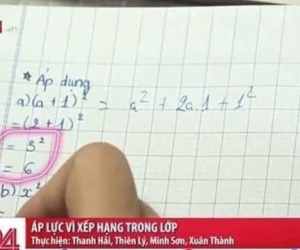 * Áp dụng
a) (a + 1)² = a² + 2a.1 + 1²
= (2 + 1)²
= 3²
= 6
b) x²
24
ÁP LỰC VÌ XẾP HẠNG TRONG LỚP
Thực hiện: Thanh Hải, Thiên Lý, Minh Sơn, Xuân Thành